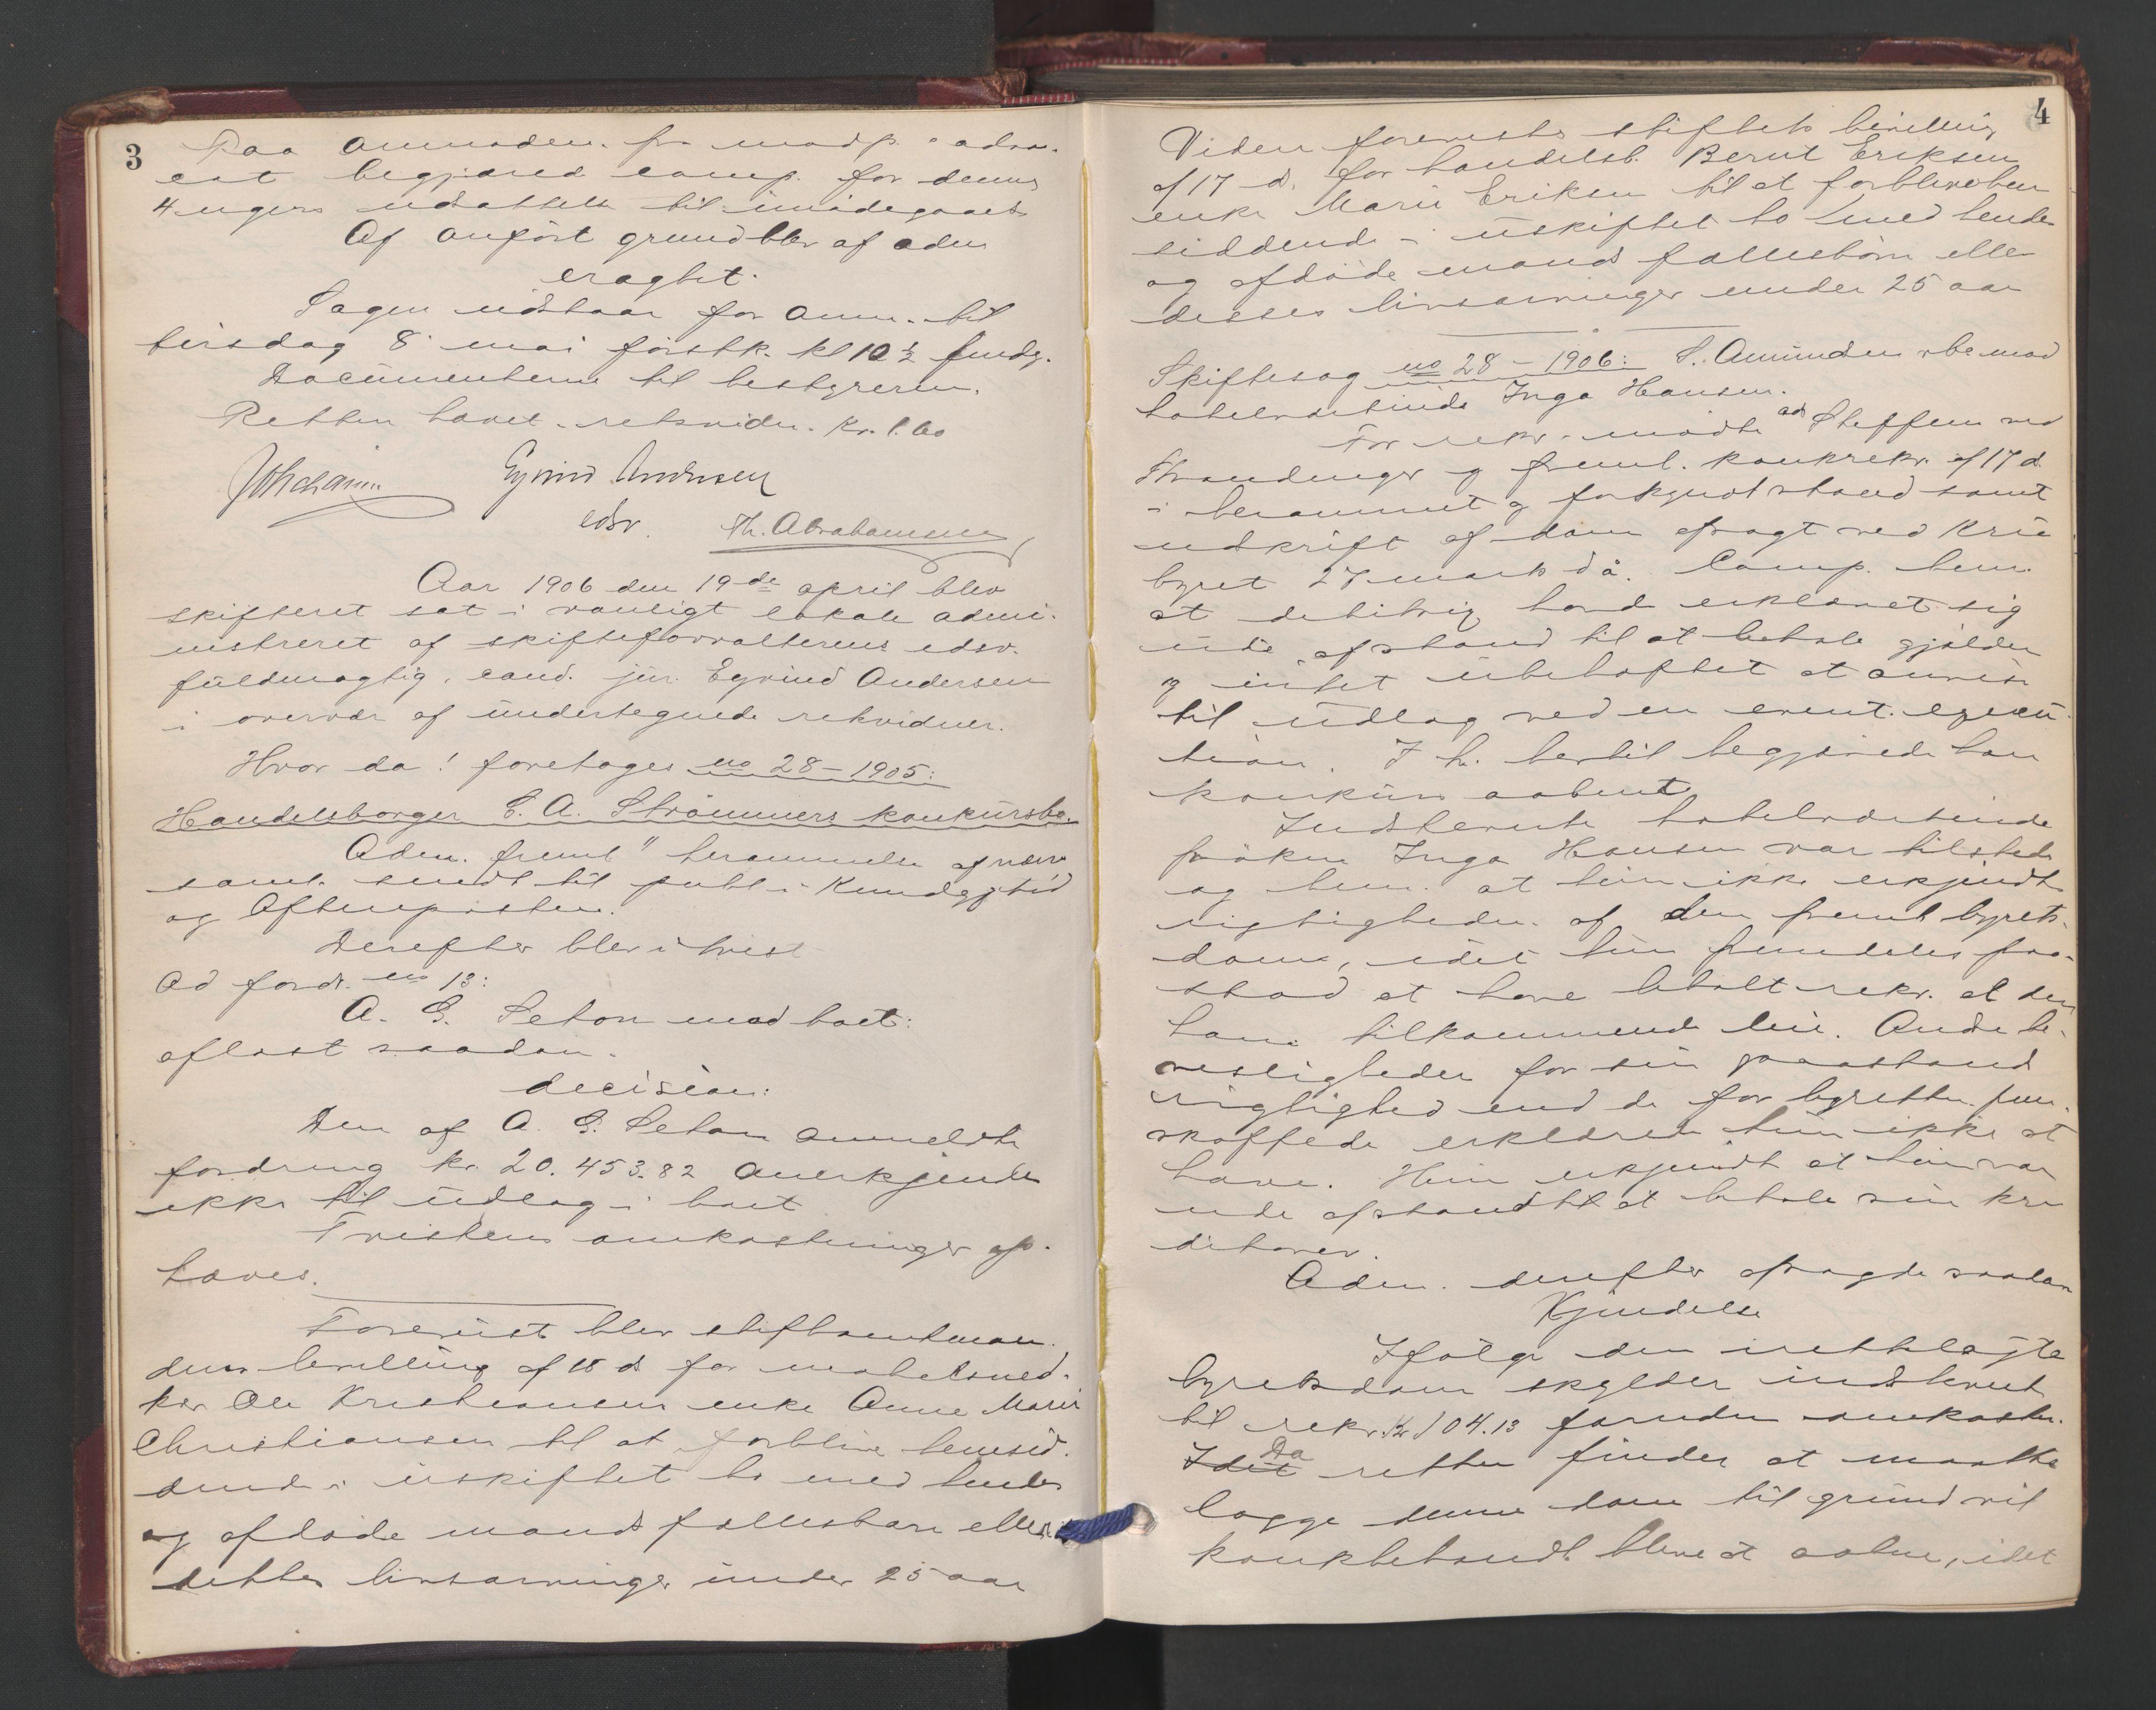 3
Paa anmoden. fra modp.s advo-
cat begjæred comp. for denne
4 ugers udsættelse til imødegaaelse
Af anført grund blev af adm
eragtet:
Sagen udstaar for anm. til
tirsdag 8. mai førstk. kl 10 ½ fmdg.
Documenterne til bestyreren.
Retten hævet. retsvidn. Kr. 1.60
Eyvind Andersen
edsv. Th. Abrahamsen
Aar 1906 den 19de april blev
skifteret sat i vanligt lokale admi-
nistreret af skifteforvalterens edsv.
fuldmægtig, cand. jur. Eyvind Andersen
i overvær af undertegnede retsvidner.
Hvor da! foretoges no 28 – 1905:
Handelsborger C. A. Strømmers konkursbo.
Adm. freml. berammelse
samt sendt til publ. i Kundgj.tid
og Aftenposten.
Derefter blev i tvist
Ad fordr. no 13:
A. G. Seton mod boet:
aflæst saadan.
decision:
Den af A. G. Seton anmeldte
fordring kr. 20.453.82 anerkjendes
ikke til udlæg i boet
Tvistens omkostninger op-
hæves.
Forevist blev stiftamtman-
dens bevilling af 18 ds for møbelsned-
ker Ole Kristiansens enke Anne Marie
Christiansen til at forblive hensid-
dende i uskiftet bo med hendes
og afdøde mands fællesbarn eller
dettes livsarvinger under 25 aar
4
Videre forevistes stiftets bevilling
af 17 ds. for handelsb. Bernt Eriksens
enke Marie Eriksen til at forblive hen
siddende i uskiftet bo med hendes
og afdøde mands fællesbørn eller
disses livsarvinger under 25 aar
Skiftesag no 28 – 1906: S. Amundsen mod
hotelværtinde Inga Hansen.
For rekv. mødte ad Steffens ved
Thrandinger og freml. konkrekv. af 17 d.
i berammet og forkyndt stand samt
udskrift af dom afsagt ved Kr.ia
byret 27 marts d.å. Comp. bem.
at debitrix havde erklæret sig
ude af stand til at betale gjælden
og intet ubehæftet at anvise
til udlæg ved en event. execu-
tion. I h. hertil begjærede han
konkurs aabnet
Indstevnte hotelværtinde
frøken Inga Hansen var tilstede
og bem. at hun ikke erkjendte
rigtigheden af den freml. byrets-
dom, idet hun fremdeles paa-
stod at have betalt rekv. al den
ham tilkommende leie. Andre be-
visligheder for sin paastands
rigtighed end de for byretten frem-
skaffede erklærede hun ikke at
have. Hun erkjendte at hun var
ude afstand til at betale sine kre
ditorer.
Adm. derefter afsagde saadan
Kjendelse
Ifølge den i rette lagte
byretsdom skylder indstevnte
til rekv. Kr 104.13 foruden omkostn.
Idet Da retten finder at maatte
lægge denne dom til grund vil
konkbehandl. blive at aabne, idet